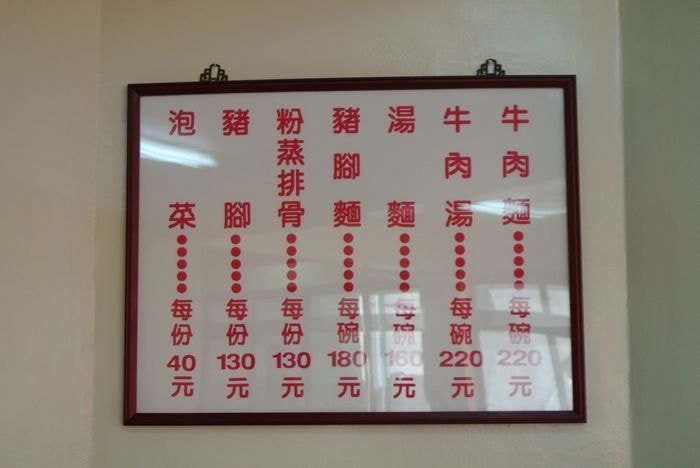 牛肉麵●●●●●每碗220元
牛肉湯●●●●●每碗220元
湯麵●●●●●每碗160元
豬腳麵●●●●●每碗180元
粉蒸排骨●●●●●每份130元
豬腳●●●●●每份130元
泡菜●●●●●每份40元